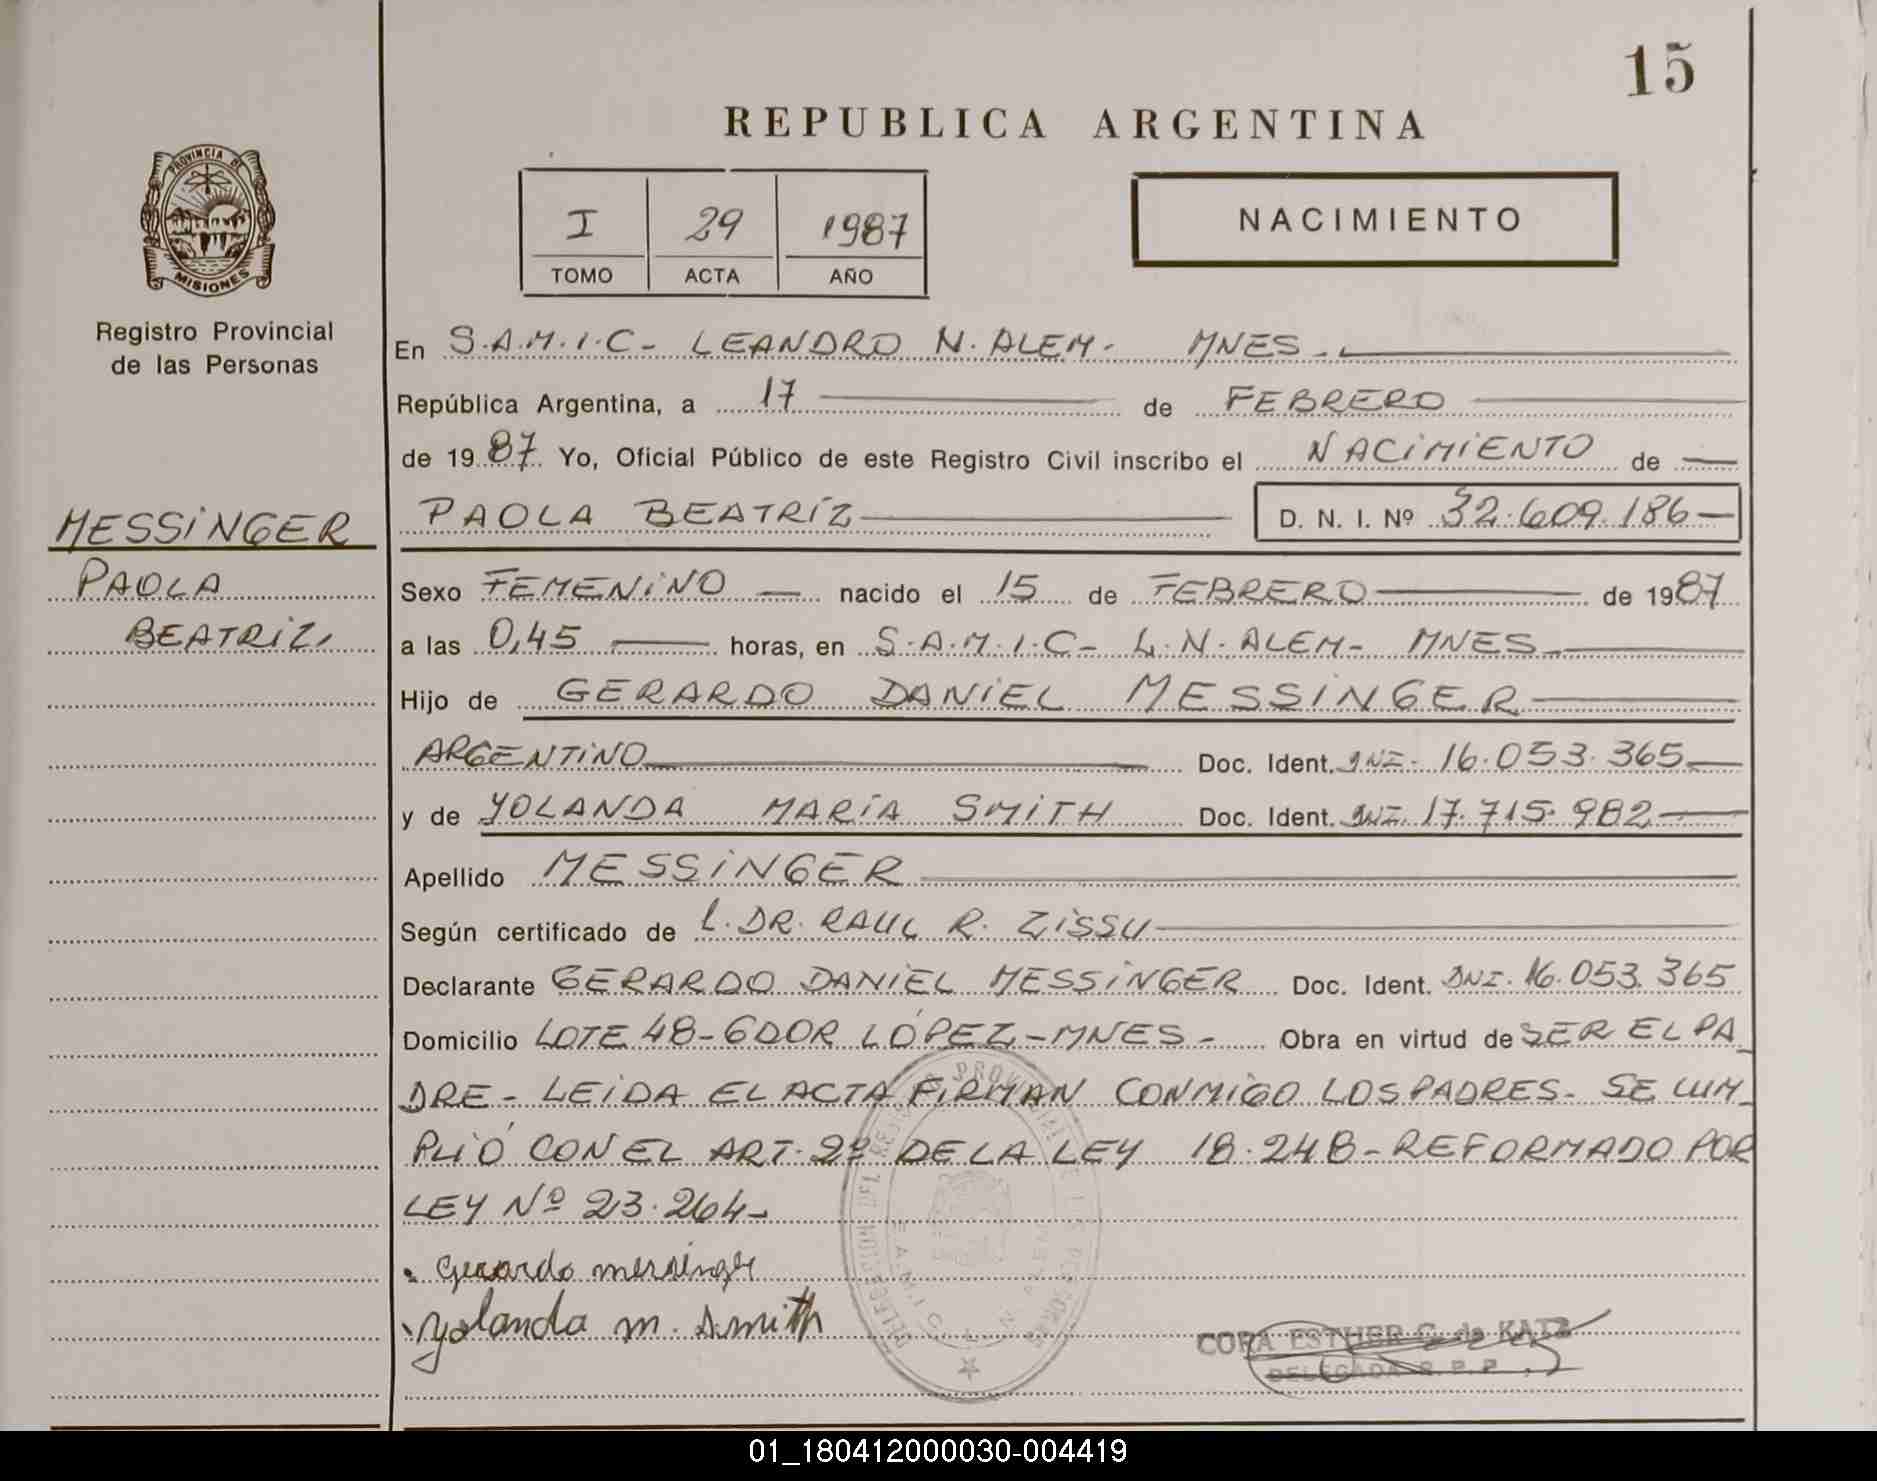 15
REPUBLICA ARGENTINA
PROVINCIA DE
MISIONES
Registro Provincial
de las Personas
I 29 1987
TOMO ACTA AÑO
NACIMIENTO
MESSINGER
PAOLA
BEATRIZ
En S.A.M.I.C- LEANDRO N. ALEM- MNES-
República Argentina, a 17 de FEBRERO
de 1987 Yo, Oficial Público de este Registro Civil inscribo el NACIMIENTO de
PAOLA BEATRÍZ D. N. I. Nº 32.609.186-
Sexo FEMENINO nacido el 15 de FEBRERO de 1987
a las 0,45 horas, en S.A.M.I.C- L.N. ALEM- MNES-
Hijo de GERARDO DANIEL MESSINGER
ARGENTINO Doc. Ident. DNI- 16.053.365
y de YOLANDA MARÍA SMITH Doc. Ident. DNI. 17.715.982
Apellido MESSINGER
Según certificado de L. DR. RAUL R. ZISSU
Declarante GERARDO DANIEL MESSINGER Doc. Ident. DNI- 16.053.365
Domicilio LOTE 48-GDOR LÓPEZ-MNES- Obra en virtud de SER EL PA
DRE- LEIDA EL ACTA FIRMAN CONMIGO LOS PADRES- SE CUM
PLIÓ CON EL ART. 2º DE LA LEY 18.248- REFORMADO POR
LEY Nº 23.264-
Gerardo messinger
Yolanda m. Smith
CORA ESTHER G. de KATZ
DELEGADA R.P.P.
01_180412000030-004419